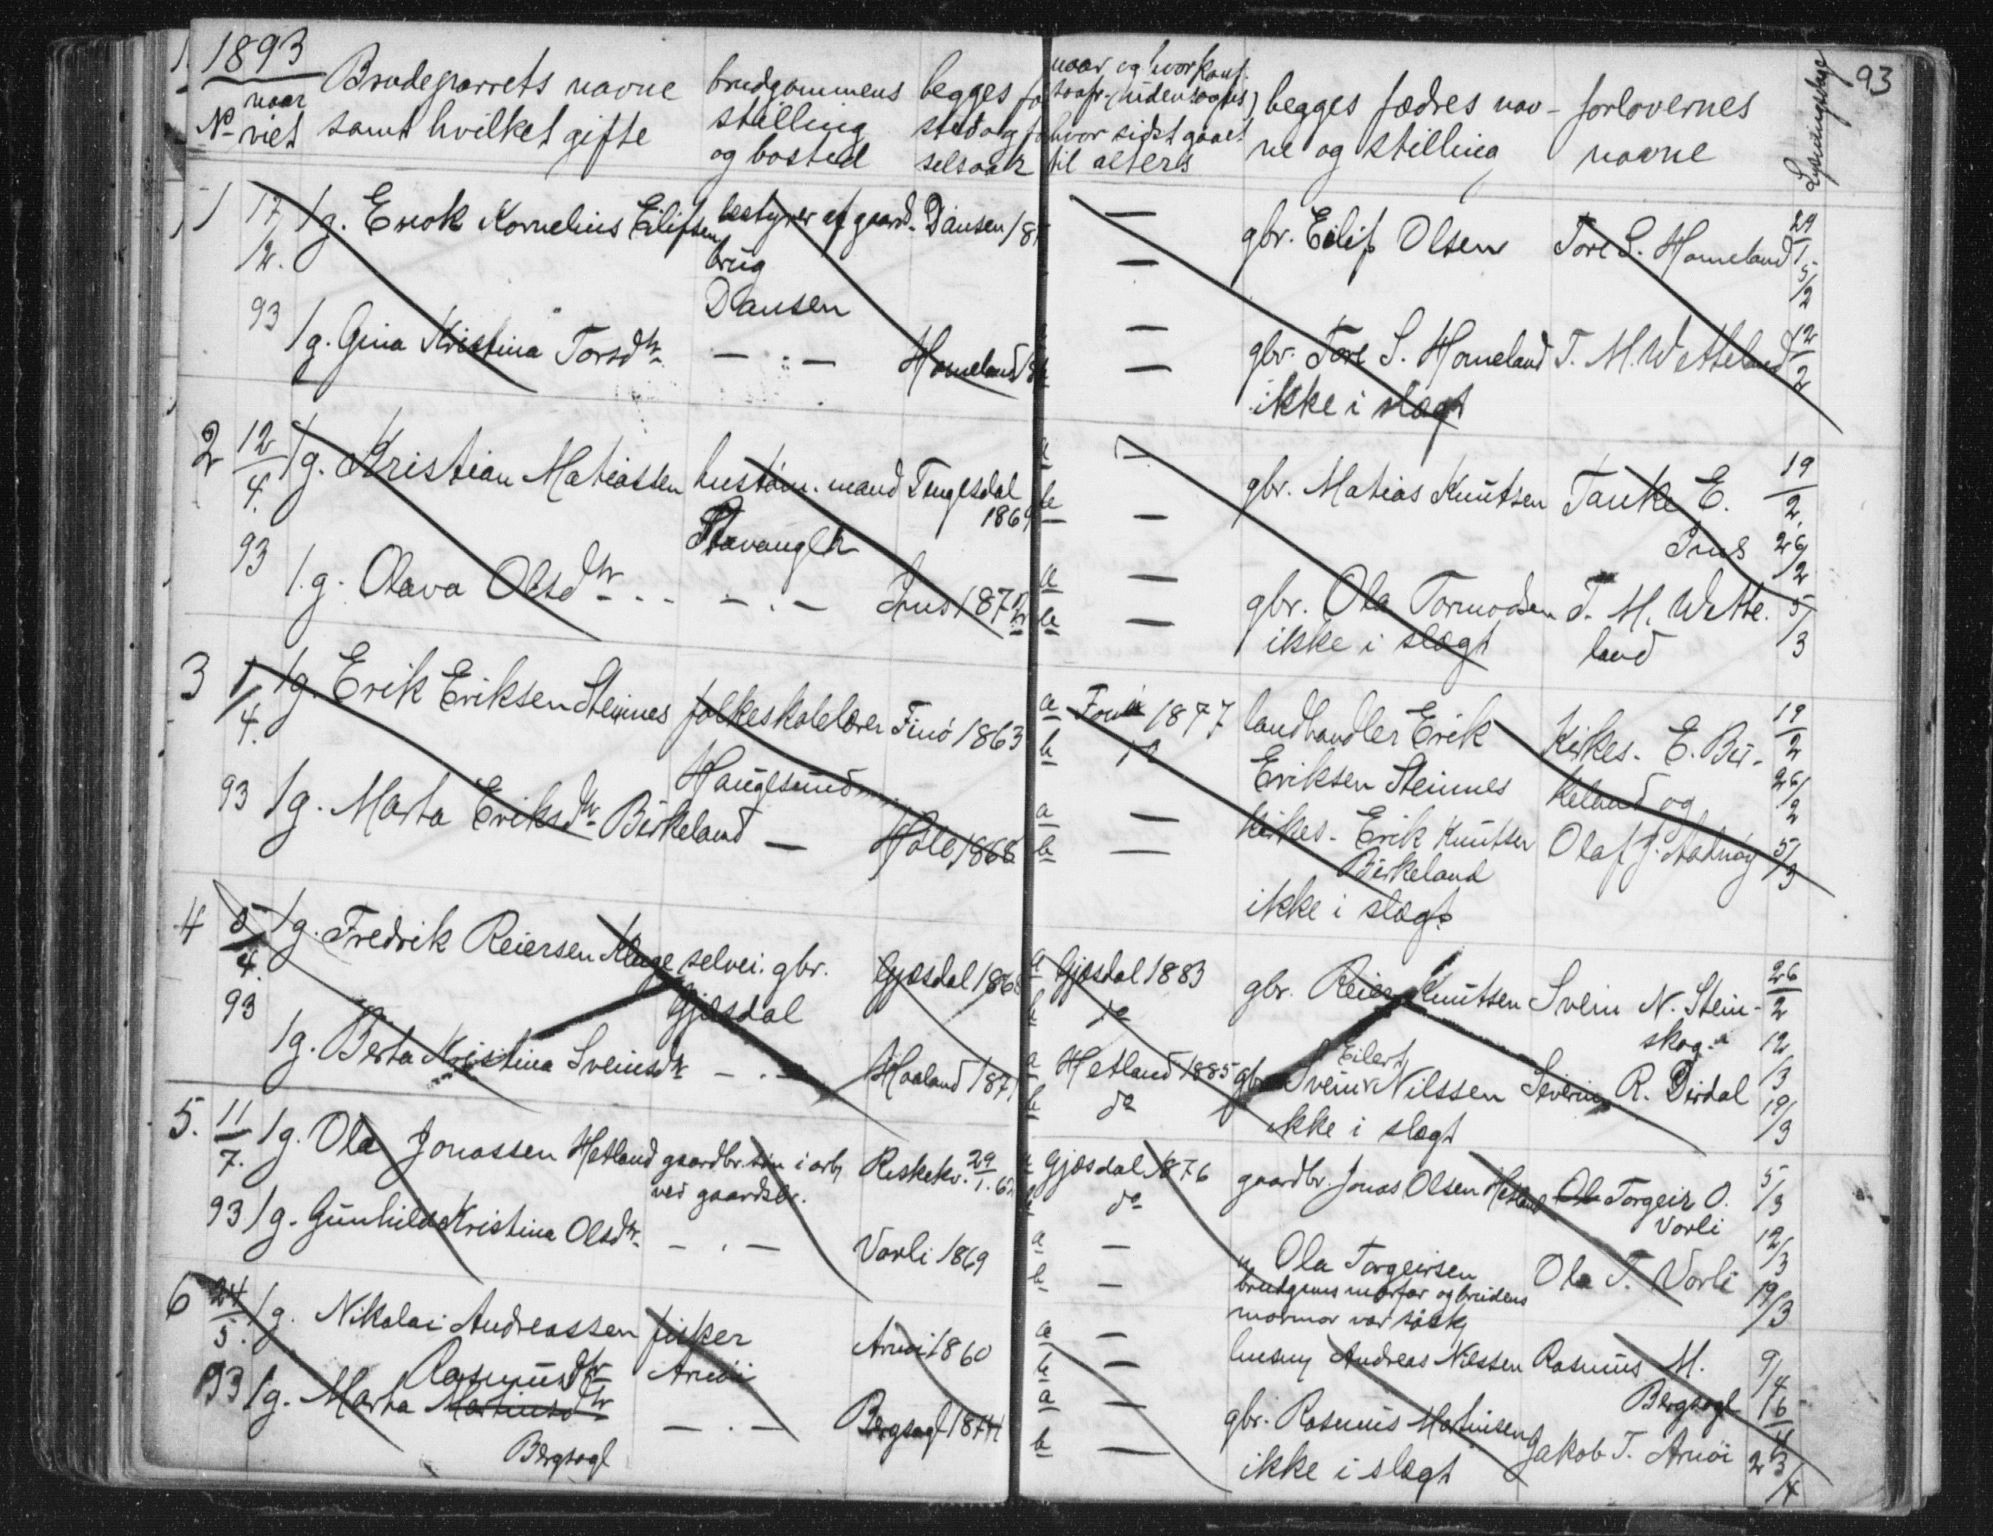 1893
93
No naar viet Brudeparrets navne samt hvilket gifte
brudgommens stilling og bosted
begges fø sted og fø selsaar
naar og hvor konf. (udensogns) hvor sidst gaaet til alters
begges fædres nav- ne og stilling
forlovernes navne
Lysningsdage
1 17/12. 93 1g. Enok Kornelius Eilifsen bestyrer af gaards- brug Dansen Dansen 18
— — gbr. Eilif Olsen Tore S. Homeland 29/1 5/2 12/2
1g. Gina Kristina Torsdtr — . — Homeland 18
— — gbr. Tore S. Homeland T. M. Wetteland
ikke i slægt
2 12/4. 93 1g. Kristian Matiassen hustøm. mand Stavanger Tengesdal 1869
a b — gbr. Mathias Knutsen Tanke E. Ims 19/2. 26/2 5/3
1.g. Olava Olsdtr — . — Ims 1872
a — b — gbr. Ola Tormodsen T. M. Wette. land
ikke i slægt
3 1/4. 93 1g. Erik Eriksen Steinnes folkeskolelærer Haugesund Finö 1863
a 1877 b do landhandler Erik Eriksen Steinnes Kirkes. E. Bir- keland og 19/2 26/2 5/3
1g. Marta Eriksdtr Birkeland — Hole 1868
a — b — Kirkes. Erik Knutsen Birkeland Olaf J.
ikke i slægt
4 5/4. 93 1g. Fredrik Reiersen Kluge selvei. gbr. Gjæsdal Gjæsdal 186
a Gjæsdal 1883 b do gbr. Reier Knutsen Svein N. Stein- skog. 26/2 12/3 19/3
1g. Berta Kristina Sveinsdtr — . — Haaland 187
a Hetland 1885 b do gbr Svein Eilert Nilssen Severin R. Dirdal
ikke i slægt
5. 11/7. 93 1g. Ola Jonassen Hetland gaardbr. søn i arb. ved gaardsbr. Riskekv. 29/1. 6
Gjæsdal 1876 do gaardbr. Jonas Olsen Hetland Ol Torgeir O. Vorli 5/3 12/3 19/3
1g. Gunhild Kristina Olsdtr. — . — Vorli 1869
a — b — " Ola Torgeirsen Ola T. Vorli
brudgoms morfar og brudens mormor var søsk
6 24/5. 93 1g. Nikolai Andreassen fisker Arnöi Arnöi 1860
a — b — husm Andreas Nilssen Rasmus M. Bergsagl 9/4 16/4 23/4
1g. Marta Martinsdtr Rasmusdtr Bergsagl — . — Bergsagl 1874
a — b — gbr. Rasmus Martinsen Jakob T. Arnöi
ikke i slægt